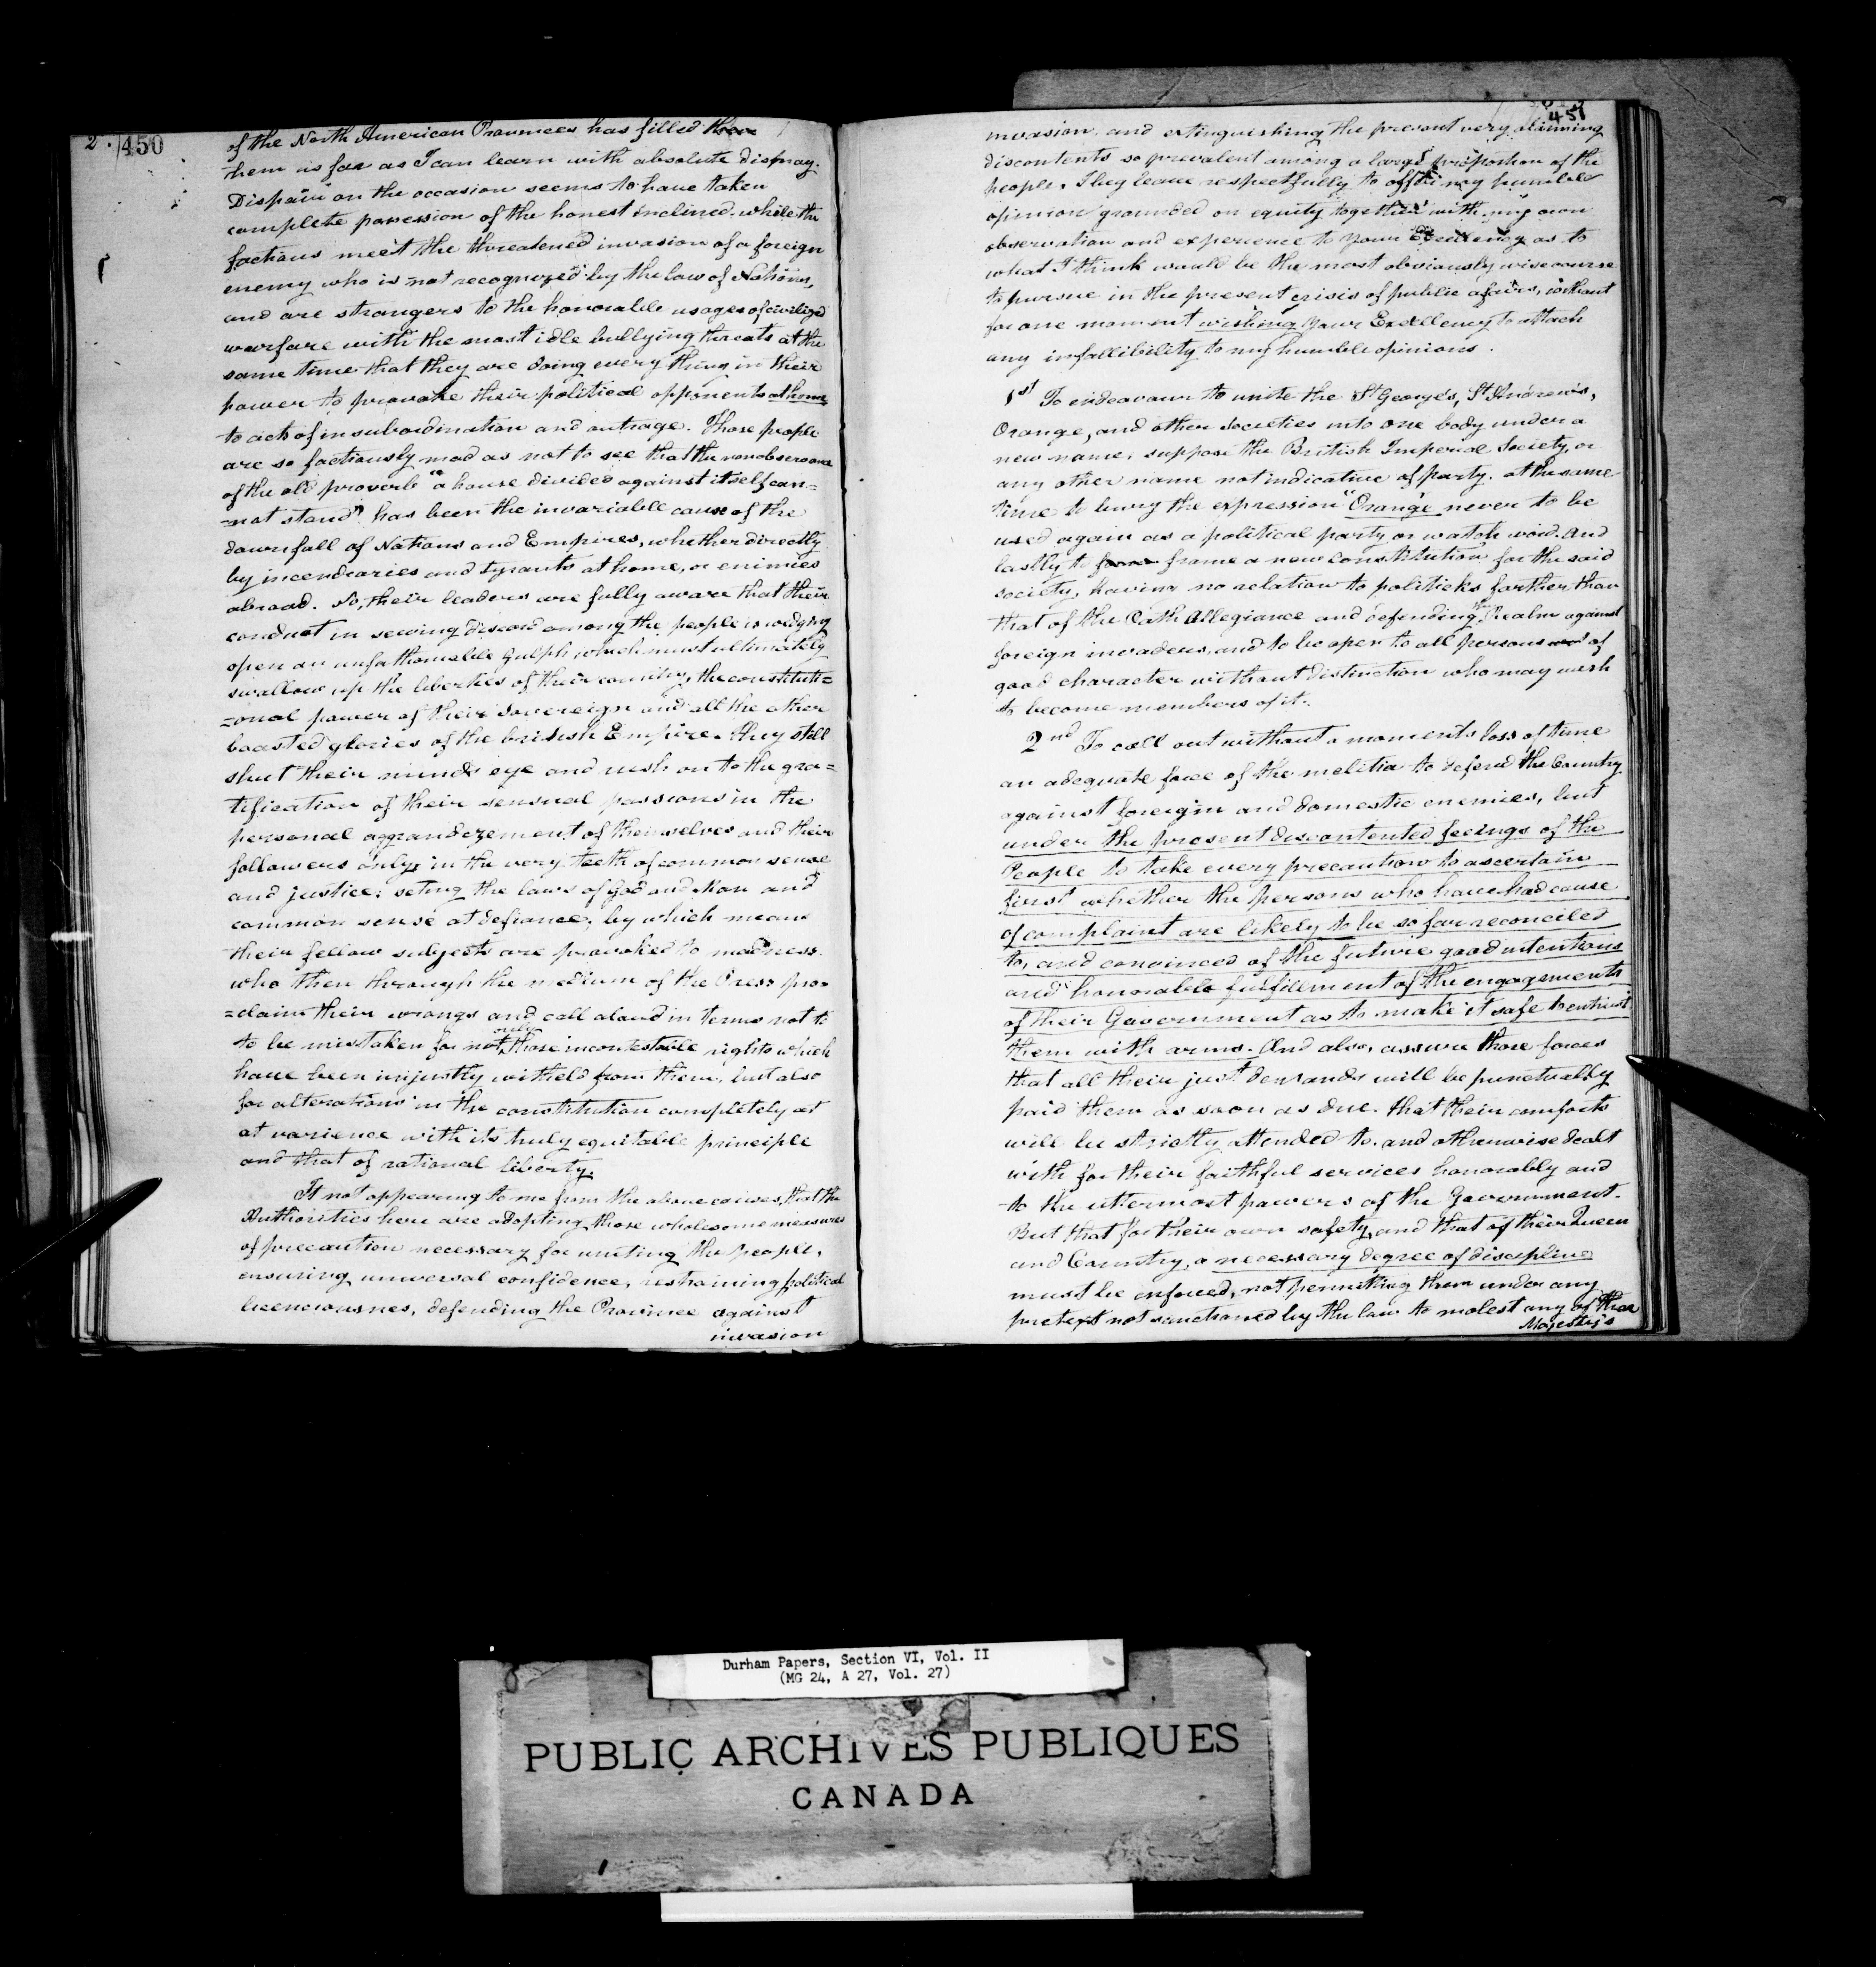 2. 450
of the North American Provinces has filled them
them as far as I can learn with absolute dismay.
Dispair on the occasion seems to have taken
complete possession of the honest inclined. while the
factious meet the threatened invasion of a foreign
enemy who is not recognized by the law of Nations,
and are strangers to the honorable usages of civilized
warfare with the most idle bullying threats at the
same time that they are doing every thing in their
power to provoke their political opponents at home
to acts of insubordination and outrage. Those people
are so factiously mad as not to see that the nonobservance
of the old proverb "a house divided against itself can=
=not stand" has been the invariable cause of the
downfall of Nations and Empires, whether directly
by incendiaries and tyrants at home, or enimies
abroad. No, their leaders are fully aware that their
conduct in sewing discord among the people is wedging
open an unfathomable Gulph which must ultimately
swallow up the liberties of their country, the constituti=
=onal power of their Sovereign and all the other
boasted glories of the british Empire. they still
shut their minds eye and rush on to the gra=
tification of their sensual passions in the
personal aggrandezement of themselves and their
followers only, in the very teeth of common sense
and justice: seting the laws of God and Man and
common sense at defiance; by which means
their fellow subjects are provoked to madness.
who then through the medium of the Press pro=
=claim their wrongs and call aloud in terms not to
to be mistaken for not only those incontestable rights which
have been unjustly witheld from them, but also
for alterations in the constitution completely at
at varience with its truly equitable principle
and that of rational liberty.
It not appearing to me from the above causes, that the
Authorities here are adopting those wholesome measures
of precaution necessary for uniting the people,
ensuring universal confidence, restraining political
licenciousnes, defending the Province against
invasion
451
invasion and extinguishing the present very alarming
discontents so prevalent among a large proportion of the
people. I beg leave respectfully to offer my humble
opinion grounded on equity together with my own
observation and experience to your Excellency as to
what I think would be the most obviously wise course
to pursue in the present crisis of public afairs, without
for one moment wishing your Excellency to attach
any infallibility to my humble opinions.
1st To endeavour to unite the St George's, St Andrew's,
Orange, and other Societies into one body under a
new name, suppose the British Imperial Society, or
any other name not indicative of party. at the same
time to bury the expression "Orange" never to be
used again as a political party or watch word. And
lastly to frame a new constitution for the said
society, having no relation to politicks farther than
that of the Oath Allegiance and defending the Realm against
foreign invaders, and to be open to all persons of
good character without distinction who may wish
to become members of it.
2nd To call out without a moments loss of time
an adequate force of the melitia to defend the Country
against foreign and domestic enemies, but
under the present descontented feeings of the
People to take every precaution to ascertain
first whether the persons who have had cause
of complaint are likely to be so far reconciled
to, and convinced of the future good intentions
and honorable fulfillment of the engagements
of their Government as to make it safe to entrust
them with arms. And also, assure those forces
that all their just demands will be punctually
paid them as soon as due. that their comforts
will be strictly attended to. and otherwise dealt
with for their faithful services honorably and
to the uttermost powers of the Government.
But that for their own safety, and that of their Queen
and Country, a necessary degree of discipline
must be enforced, not permitting them under any
pretext not sanctioned by the law to molest any of their
Majesty's
Durham Papers, Section VI, Vol. II
(MG 24, A 27, Vol. 27)
PUBLIC ARCHIVES PUBLIQUES
CANADA